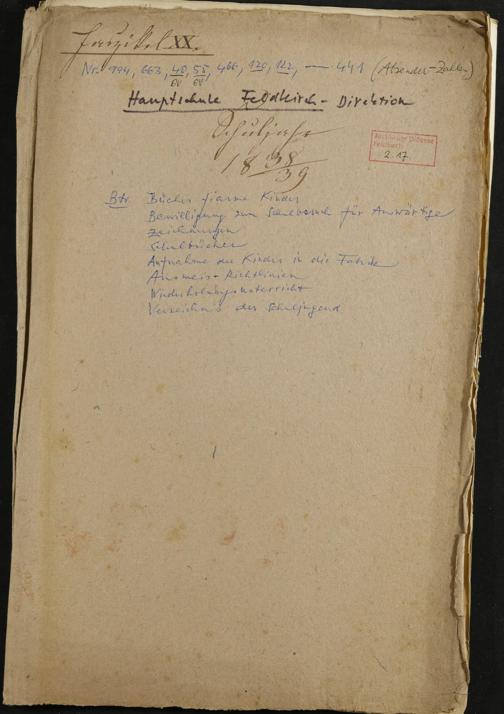 Faszikel XX.
Nr. 994, 663, 48, 55, 466, 120, 112, — 441 (Absender-Zahlen)
Hauptschule Feldkirch - Direktion
Schuljahr
1838/39
Archiv der Diözese
Feldkirch
2.17.
Btr. Bücher f. arme Kinder
Bewilligung zum Schulbesuch für Auswärtige
Zeichnungen
Schulbücher
Aufnahme der Kinder in die Fabrik
Ausweis-Richtlinien
Wiederholungsunterricht
Verzeichnis der Schuljugend